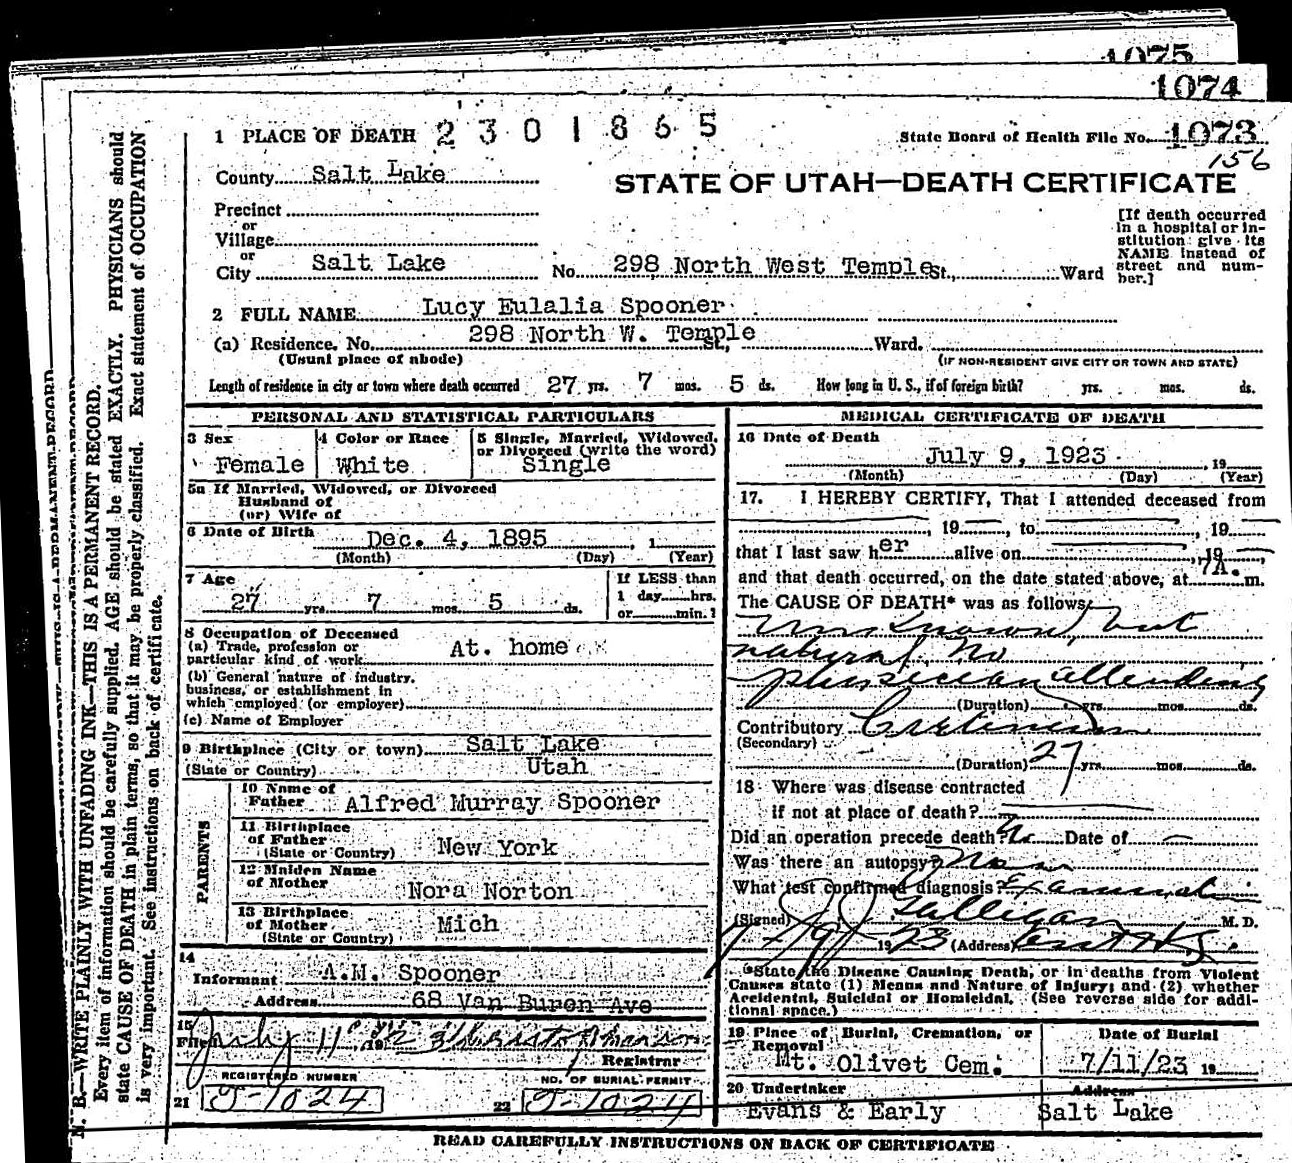 1075
1074
1 PLACE OF DEATH 2301865
State Board of Health File No. 1073
156
County Salt Lake
STATE OF UTAH—DEATH CERTIFICATE
Precinct
or
Village
or
City Salt Lake No. 298 North West Temple St., Ward
[If death occurred in a hospital or institution give its NAME instead of street and number.]
2 FULL NAME Lucy Eulalia Spooner
(a) Residence. No. 298 North W. Temple St., Ward.
(Usual place of abode) (IF NON-RESIDENT GIVE CITY OR TOWN AND STATE)
Length of residence in city or town where death occurred 27 yrs. 7 mos. 5 ds. How long in U. S., if of foreign birth? yrs. mos. ds.
PERSONAL AND STATISTICAL PARTICULARS
3 Sex
Female
4 Color or Race
White
5 Single, Married, Widowed, or Divorced (write the word)
Single
5a If Married, Widowed, or Divorced
Husband of
(or) Wife of
6 Date of Birth Dec. 4, 1895, 1
(Month) (Day) (Year)
7 Age
27 yrs. 7 mos. 5 ds.
If LESS than
1 day hrs.
or min.?
8 Occupation of Deceased
(a) Trade, profession or particular kind of work At. home
(b) General nature of industry, business, or establishment in which employed (or employer)
(c) Name of Employer
9 Birthplace (City or town) Salt Lake
(State or Country) Utah
PARENTS
10 Name of Father Alfred Murray Spooner
11 Birthplace of Father (State or Country) New York
12 Maiden Name of Mother Nora Norton
13 Birthplace of Mother (State or Country) Mich
14
Informant A.M. Spooner
Address 68 Van Buren Ave
15
Filed July 11
Registrar
REGISTERED NUMBER
21 J-1024
NO. OF BURIAL PERMIT
22 J-1024
MEDICAL CERTIFICATE OF DEATH
16 Date of Death
July 9, 1923, 19
(Month) (Day) (Year)
17. I HEREBY CERTIFY, That I attended deceased from
, 19 , to , 19
that I last saw her alive on , 19
and that death occurred, on the date stated above, at 7A. m.
The CAUSE OF DEATH* was as follows:
Unknown, but
natural. No
physician attending
(Duration) yrs. mos. ds.
Contributory Cretenism
(Secondary)
(Duration) 27 yrs. mos. ds.
18 Where was disease contracted
if not at place of death?
Did an operation precede death? No Date of
Was there an autopsy?
What test confirmed diagnosis?
(Signed) Galligan M. D.
1923 (Address)
*State the Disease Causing Death, or in deaths from Violent Causes state (1) Means and Nature of Injury; and (2) whether Accidental, Suicidal or Homicidal. (See reverse side for additional space.)
19 Place of Burial, Cremation, or Removal
Mt. Olivet Cem.
Date of Burial
7/11/23 19
20 Undertaker
Evans & Early
Address
Salt Lake
READ CAREFULLY INSTRUCTIONS ON BACK OF CERTIFICATE
N. B.—WRITE PLAINLY WITH UNFADING INK—THIS IS A PERMANENT RECORD.
Every item of information should be carefully supplied. AGE should be stated EXACTLY. PHYSICIANS should
state CAUSE OF DEATH in plain terms, so that it may be properly classified. Exact statement of OCCUPATION
is very important. See instructions on back of certificate.